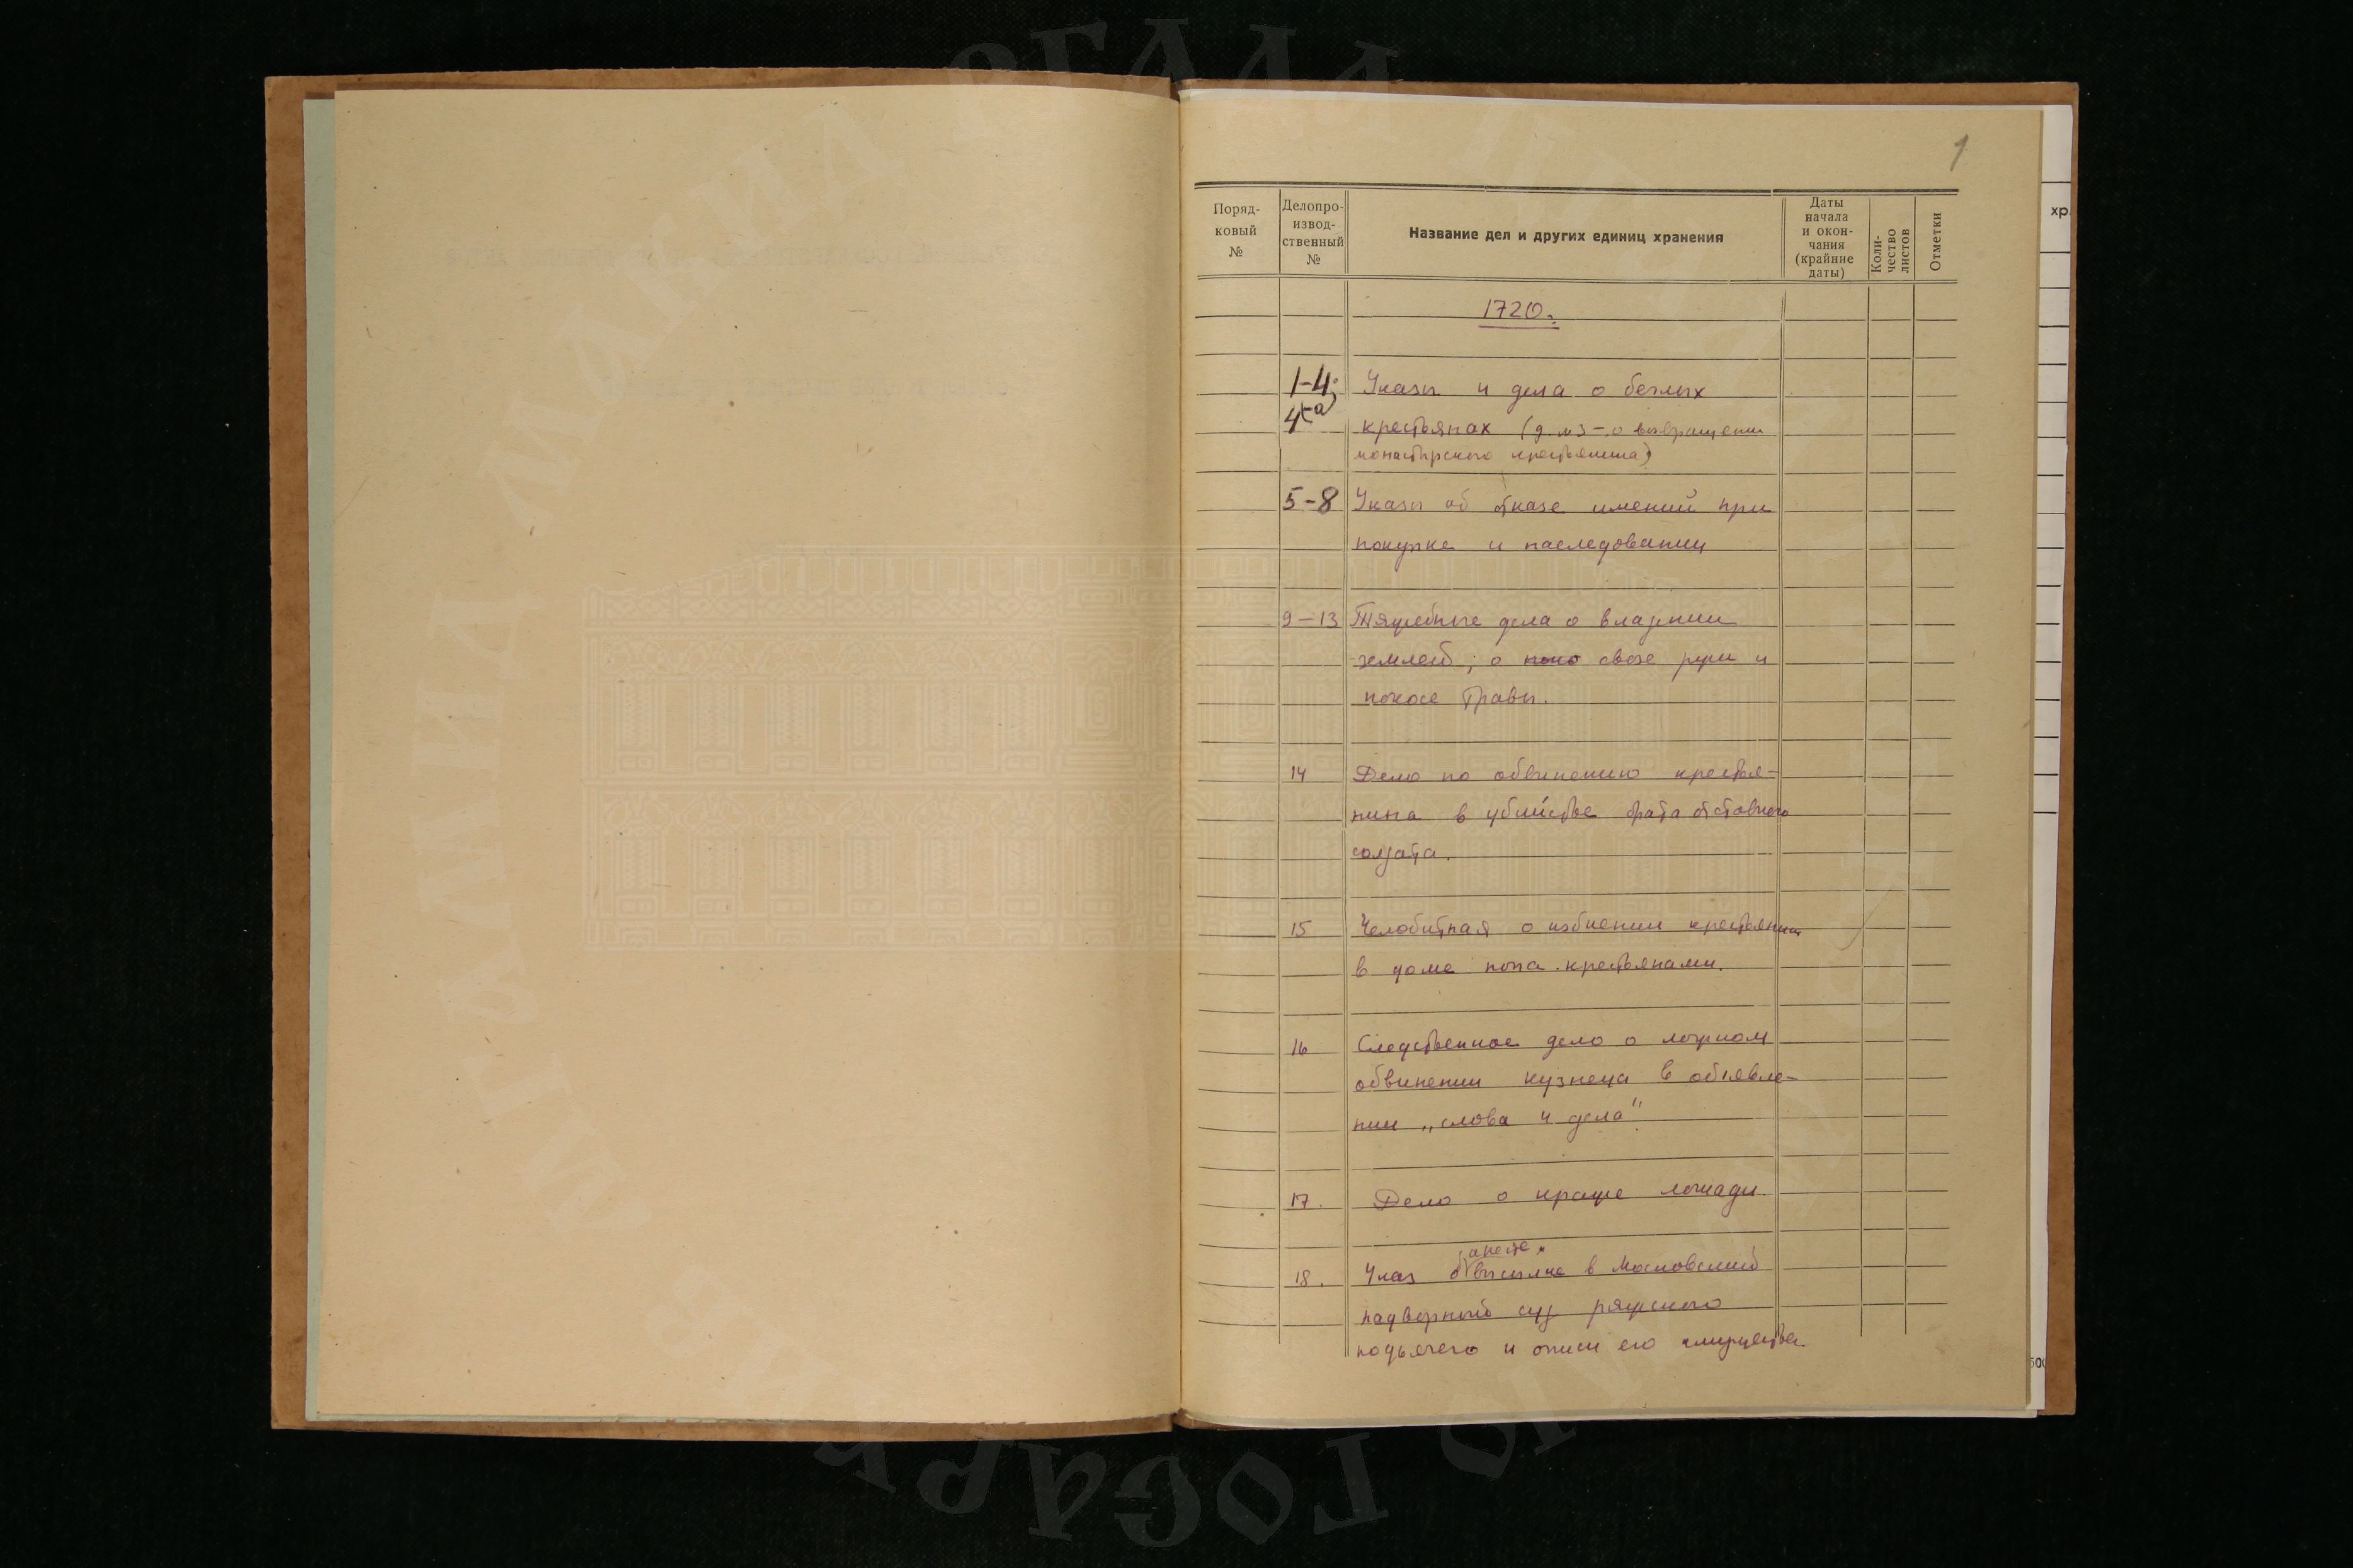 1
Поряд-
ковый
№
Делопро-
извод-
ственный
№
Название дел и других единиц хранения
Даты
начала
и окон-
чания
(крайние
даты)
Коли-
чество
листов
Отметки
хр.
1720.
1-4; Указы и дела о беглых
4-а крестьянах (д. №3 - о возвращении
монастырского крестьянина)
5-8 Указы об отказе имений при
покупке и наследовании
9-13 Тяжебные дела о владении
землей; о свозе ржи и
покосе травы.
14 Дело по обвинению крестья-
нина в убийстве брата отставного
солдата.
15 Челобитная о избиении крестьянина
в доме попа крестьянами.
16 Следственное дело о ложном
обвинении кузнеца в объявле-
нии „слова и дела"
17. Дело о краже лошади
аресте,
18. Указ о высылке в Московский
надворный суд ряжского
подьячего и описи его имущества